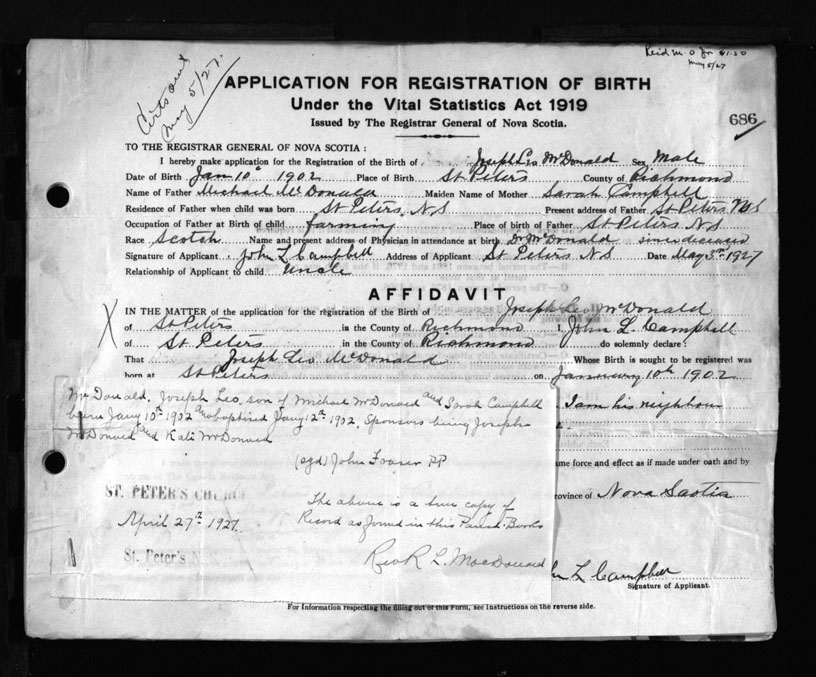 Certs sent
May 5/27.
Reid M.O. for $1.50
May 5/27
APPLICATION FOR REGISTRATION OF BIRTH
Under the Vital Statistics Act 1919
Issued by The Registrar General of Nova Scotia.
686
TO THE REGISTRAR GENERAL OF NOVA SCOTIA :
I hereby make application for the Registration of the Birth of Joseph Leo McDonald Sex Male
Date of Birth Jan 10th 1902 Place of Birth St Peters County of Richmond
Name of Father Michael McDonald Maiden Name of Mother Sarah Campbell
Residence of Father when child was born St Peters, N.S Present address of Father St Peters N.S
Occupation of Father at Birth of child farming Place of birth of Father St Peters N.S
Race Scotch Name and present address of Physician in attendance at birth Dr McDonald since deceased
Signature of Applicant John L Campbell Address of Applicant St Peters N.S Date May 3rd 1927
Relationship of Applicant to child Uncle
AFFIDAVIT
X
IN THE MATTER of the application for the registration of the Birth of Joseph Leo McDonald
of St Peters in the County of Richmond I, John L. Campbell
of St Peters in the County of Richmond do solemnly declare :
That Joseph Leo McDonald Whose Birth is sought to be registered was
born at St Peters on January 10th 1902
McDonald, Joseph Leo, son of Michael McDonald and Sarah Campbell
born Jany 10th 1902 and baptized Jany 12th 1902. Sponsors being Joseph
McDonald and Kate McDonald
(sgd) John Fraser PP
I am his neighbour
ame force and effect as if made under oath and by
rovince of Nova Scotia
ST. PETER'S CHURCH
April 27th 1927.
St. Peter's N
The above is a true copy of
Record as found in this Parish Books
Rev R L. MacDonald
hn L Campbell
Signature of Applicant.
For Information respecting the filling out of this Form, see Instructions on the reverse side.